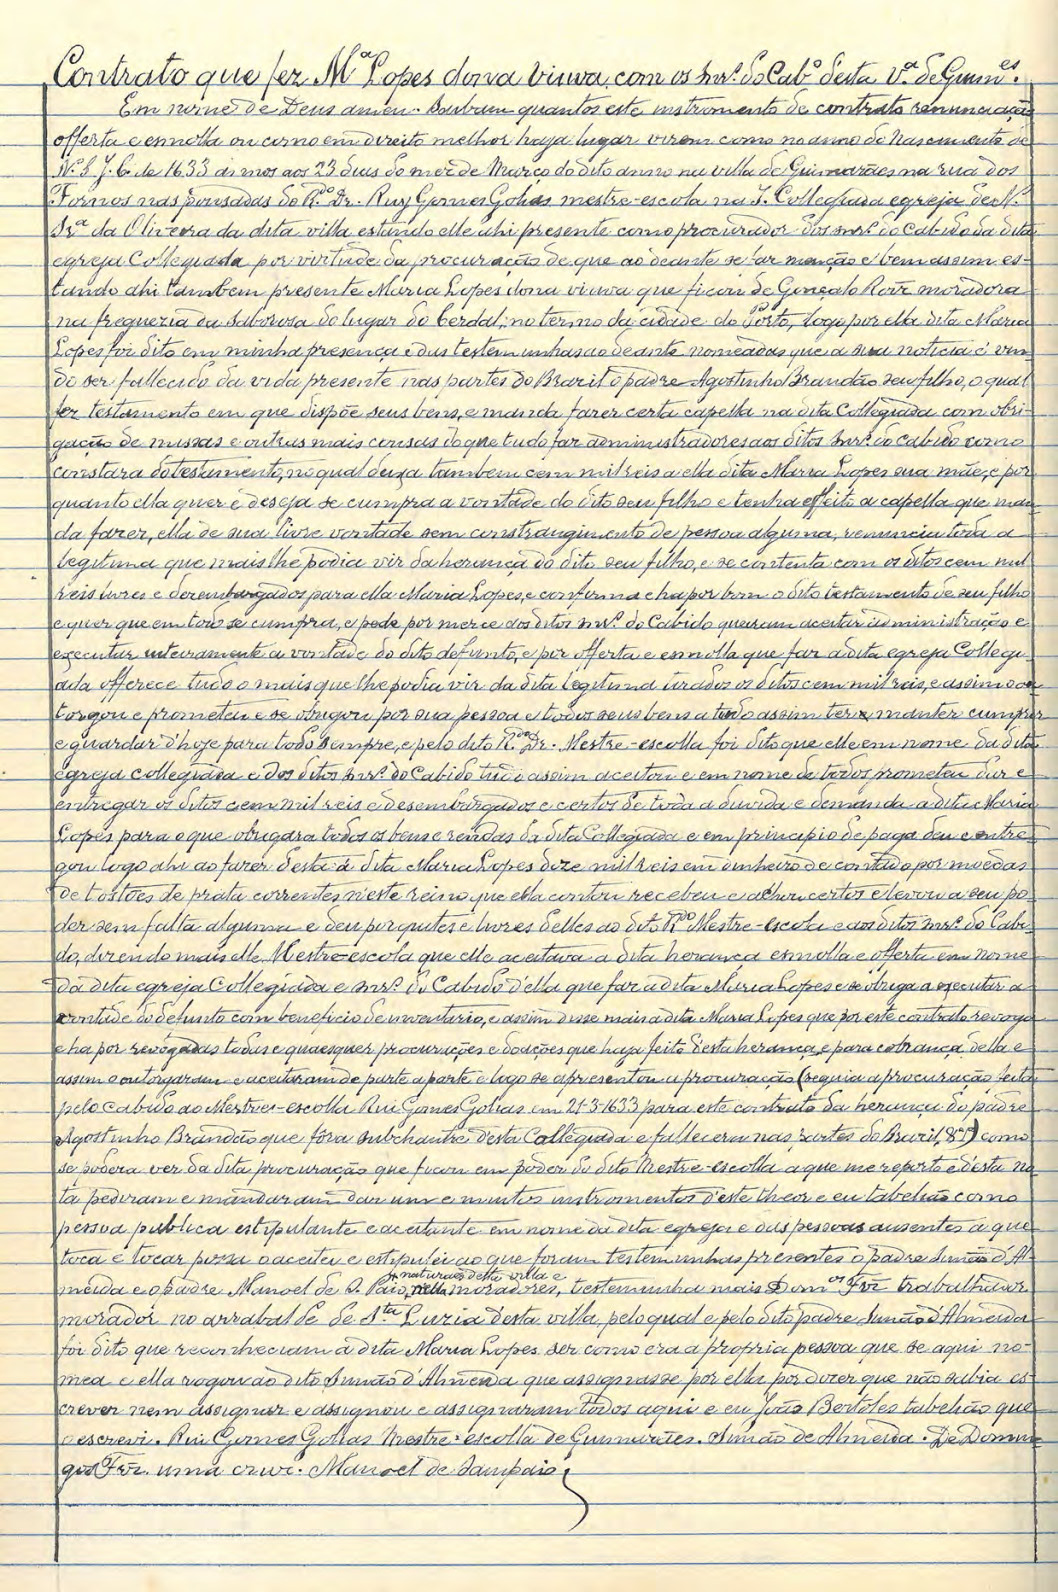 Contrato que fez Mª Lopes dona viuva com os snrs. do Cabº desta Vª de Guimes.
Em nome de Deus amen. Saibam quantos este instromento de contrato renunciação
offerta e esmolla ou como em direito melhor haja lugar virem como no anno do Nascimento de
N. S. J. C. de 1633 annos aos 23 dias do mez de Março do dito anno na villa de Guimarães na rua dos
Fornos nas pousadas do R.do Dr. Ruy Gomes Golias mestre-escola na I. Collegiada egreja de N.
Srª da Oliveira da dita villa estando elle ahi presente como procurador dos snrs. do Cabido da dita
egreja Collegiada por virtude da procuração de que ao deante se far menção e bem assim es-
tando ahi tambem presente Maria Lopes dona viuva que ficou de Gonçalo Roiz moradora
na freguezia da Saborosa do lugar do Cerdal, no termo da cidade do Porto, logo por ella dita Maria
Lopes foi dito em minha presença e das testemunhas ao deante nomeadas que a sua noticia é vin-
do ser fallecido da vida presente nas partes do Brazil o padre Agostinho Brandão seu filho, o qual
fez testamento em que dispõe seus bens, e manda fazer certa capella na dita Collegiada com obri-
gação de missas e outras mais cousas do que tudo faz administradores aos ditos snrs. do Cabido como
constara do testamento, no qual deixa tambem cem mil reis a ella dita Maria Lopes sua mãe, e por
quanto ella quer e deseja se cumpra a vontade do dito seu filho e tenha effeito a capella que man-
da fazer, ella de sua livre vontade sem constrangimento de pessoa alguma, renuncia toda a
legitima que mais lhe podia vir da herança do dito seu filho, e se contenta com os ditos cem mil
reis livres e desembargados para ella Maria Lopes, e confirma e ha por bom o dito testamento de seu filho
e quer que em todo se cumpra, e pede por merce aos ditos snrs. do Cabido queiram aceitar administração e
executar inteiramente a vontade do dito defunto, e por offerta e esmolla que faz a dita egreja Collegi-
ada offerece tudo o mais que lhe podia vir da dita legitima tirados os ditos cem mil reis, e assim o ou-
torgou e prometeu e se obrigou por sua pessoa e todos seus bens a todo assim ter e manter cumprir
e guardar d'hoje para todo sempre, e pelo dito R.do Dr. Mestre-escolla foi dito que elle em nome da dita
egreja collegiada e dos ditos snrs. do Cabido tudo assim aceitou e em nome de todos prometeu dar e
entregar os ditos cem mil reis e desembargados e certos de toda a duvida e demanda a dita Maria
Lopes para o que obrigara todos os bens e rendas da dita Collegiada e em principio de paga deu e entre-
gou logo ahi ao fazer desta á dita Maria Lopes doze mil reis em dinheiro de contado por moedas
de tostões de prata correntes n'este reino que ella contou recebeu e achou certos e levou a seu po-
der sem falta alguma e deu por quites e livres delles ao dito R.do Mestre-escola e aos ditos snrs. do Cabi-
do, dizendo mais elle Mestre-escola que elle aceitava a dita herança esmolla e offerta em nome
da dita egreja Collegiada e snrs. do Cabido d'ella que faz a dita Maria Lopes e se obriga a executar a
vontade do defunto com beneficio de inventario, e assim disse mais a dita Maria Lopes que por este contrato revoga
e ha por revogadas todas e quaesquer procurações e doações que haja feito desta herança, e para cobrança della e
assim o outorgaram e aceitaram de parte a parte e logo se apresentou a procuração (seguia a procuração feita
pelo cabido ao Mestre-escolla Rui Gomes Golias em 21-3-1633 para este contrato da herança do padre
Agostinho Brandão que fôra subchantre desta Collegiada e fallecera nas partes do Brazil, &ª) como
se podera ver da dita procuração que ficou em poder do dito Mestre-escolla a que me reporto e desta no-
ta pediram e mandaram dar um e muitos instromentos d'este theor e eu tabelião como
pessoa publica estipulante e aceitante em nome da dita egreja e das pessoas ausentes a que
toca e tocar possa o aceitei e estipulei ao que foram testemunhas presentes o padre Simão d'Al-
naturaes desta villa e
meida e o padre Manoel de S. Paio, nella moradores, testemunha mais Domos Frz trabalhador
morador no arrabalde de Sta Luzia desta villa, pelo qual e pelo dito padre Simão d'Almeida
foi dito que reconheciam a dita Maria Lopes ser como era a propria pessoa que se aqui no-
mea e ella rogou ao dito Simão d'Almeida que assignasse por ella por dizer que não sabia es-
crever nem assignar e assignou e assignaram todos aqui e eu João Bertoles tabelião que
o escrevi. Rui Gomes Golias Mestre-escolla de Guimarães. Simão de Almeida. De Domin-
gos Frz. uma cruz. Manoel de Sampaio.